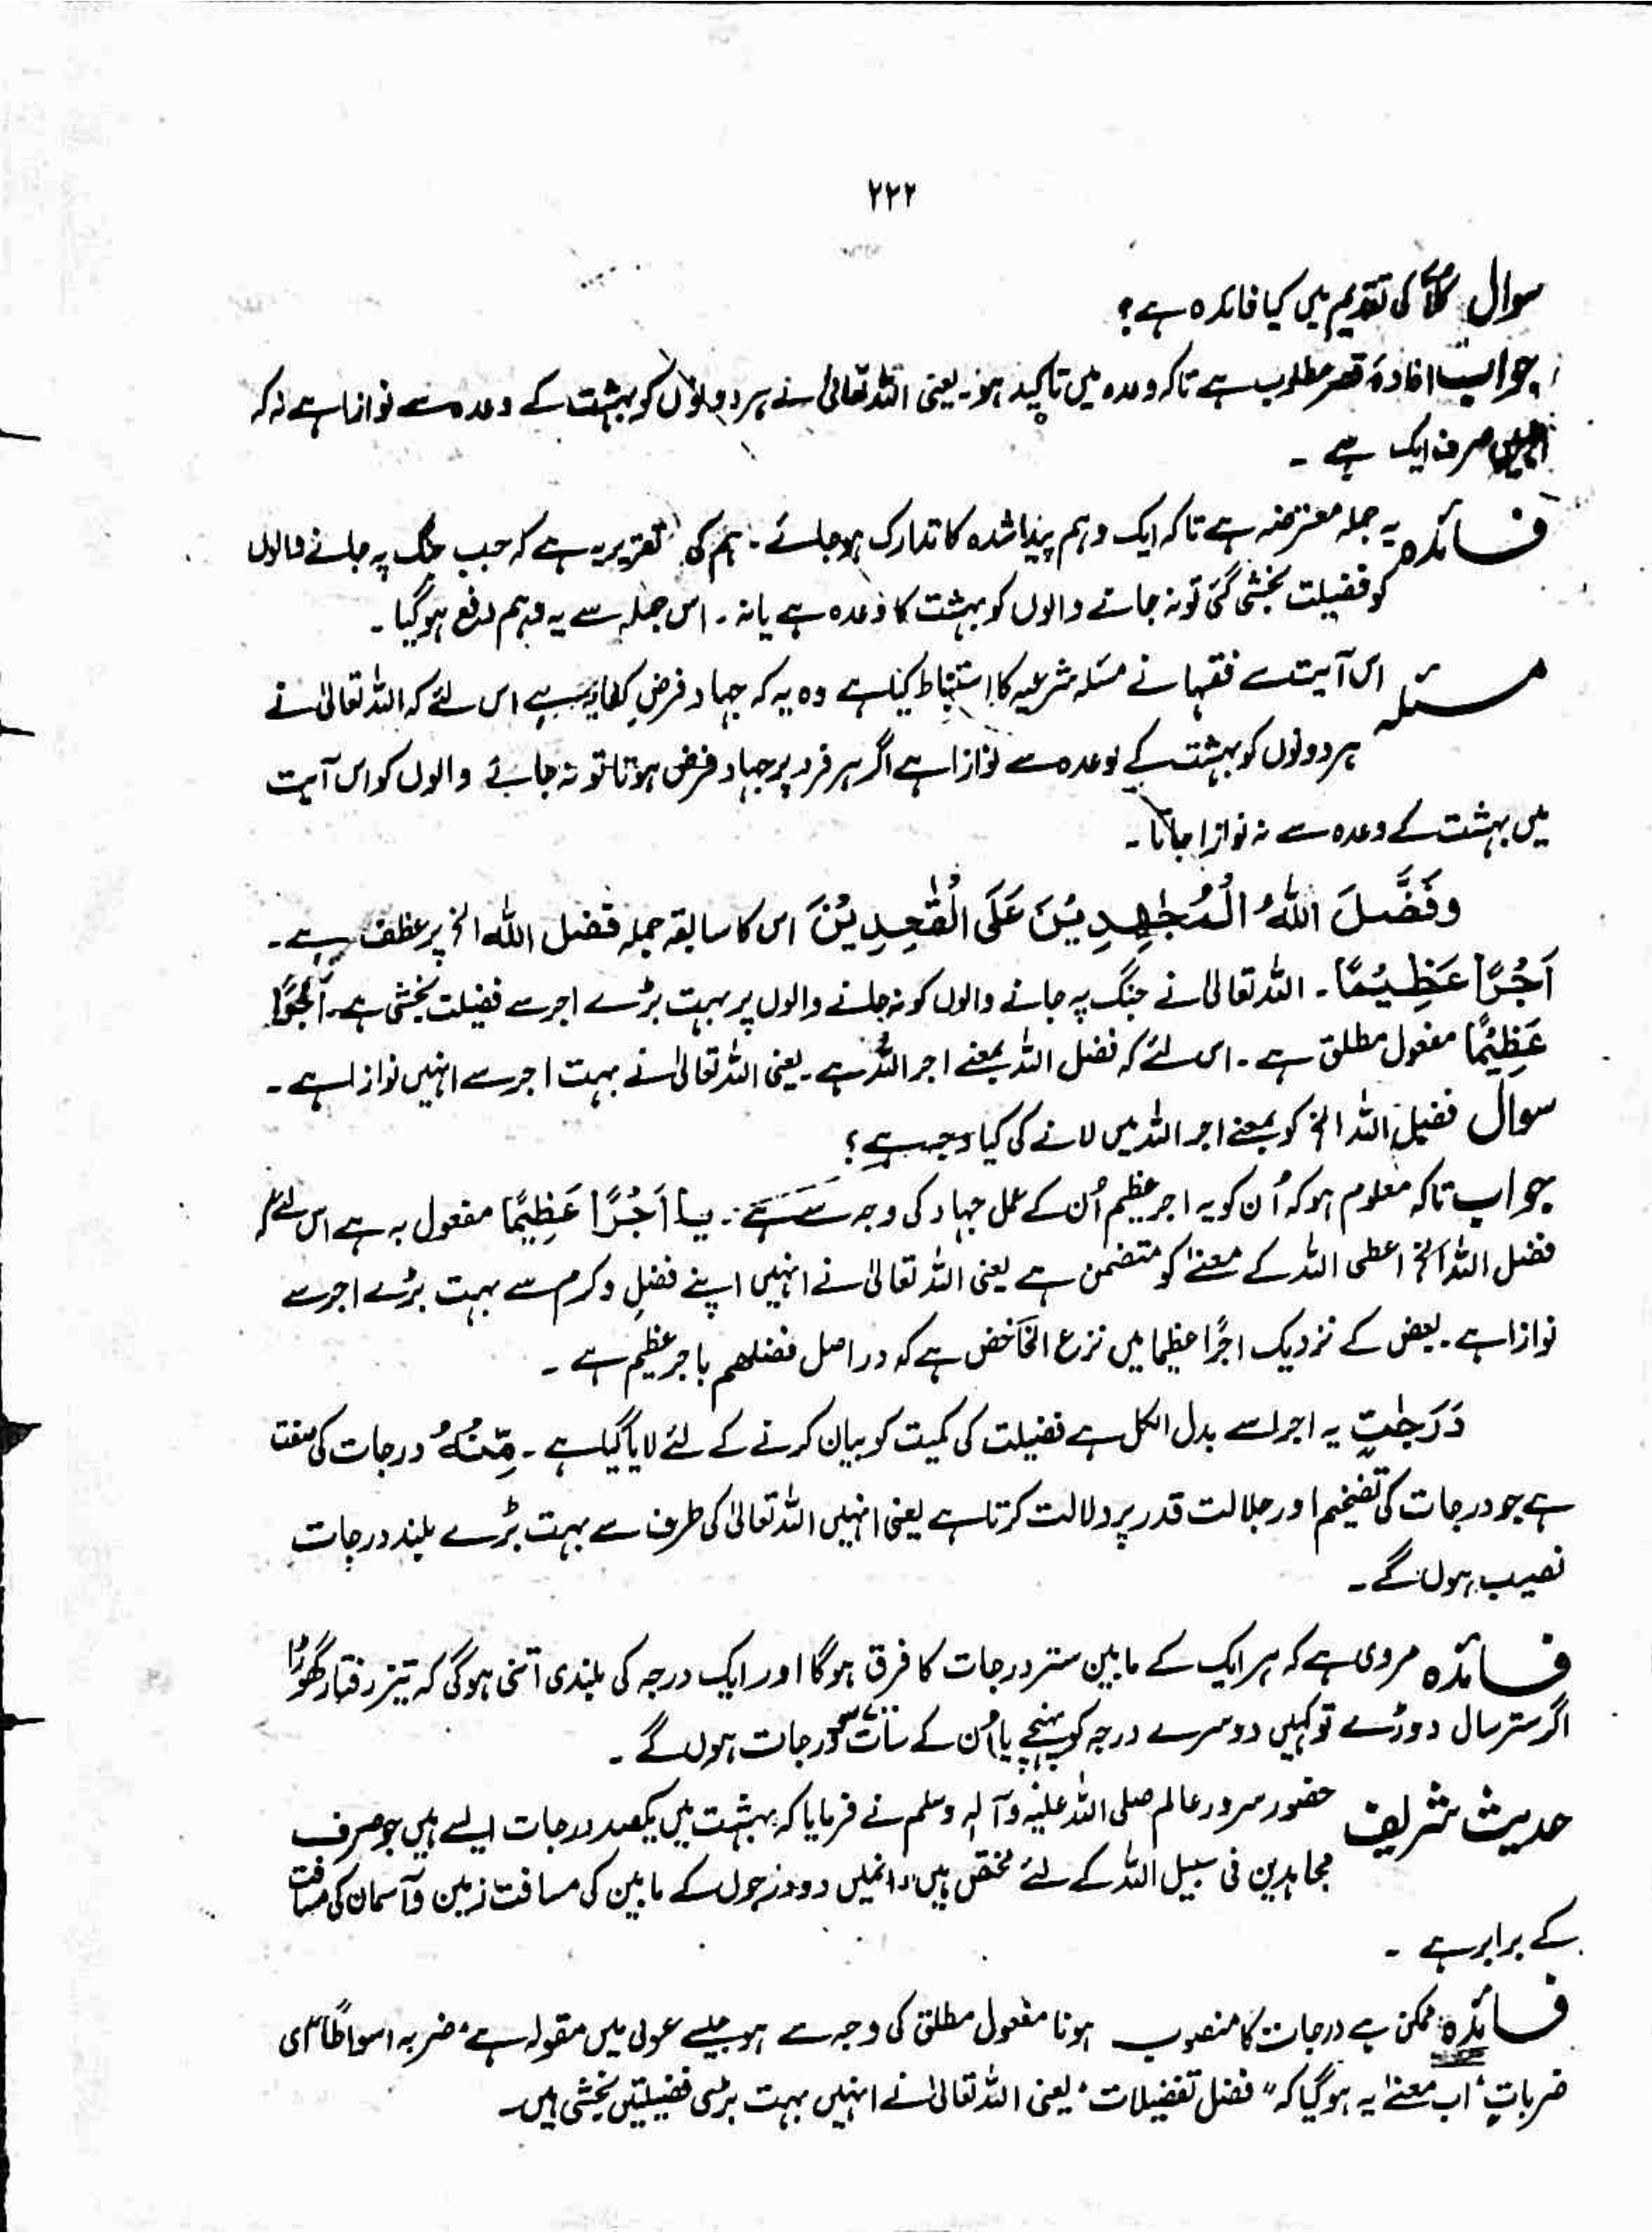 ۲۲۲
سوال کلاً کی تقدیم میں کیا فائدہ ہے؟
جواب افادۂ قصر مطلوب ہے تاکہ وعدہ میں تاکید ہو۔ یعنی اللہ تعالیٰ نے ہر دونوں کو بہشت کے وعدہ سے نوازا ہے نہ کہ
صرف ایک ہے ۔
فائدہ یہ جملہ معترضہ ہے تاکہ ایک وہم پیدا شدہ کا تدارک ہو جائے ۔ ہم کی تقریر یہ ہے کہ جب جنگ پہ جانے والوں
کو فضیلت بخشی گئی تو نہ جانے والوں کو بہشت کا وعدہ ہے یا نہ ۔ اس جملہ سے یہ وہم دفع ہو گیا ۔
مسئلہ اس آیت سے فقہا نے مسئلہ شرعیہ کا استنباط کیا ہے وہ یہ کہ جہاد فرض کفایہ ہے اس لئے کہ اللہ تعالیٰ نے
ہر دونوں کو بہشت کے وعدہ سے نوازا ہے اگر ہر فرد پر جہاد فرض ہوتا تو نہ جانے والوں کو اس آیت
میں بہشت کے وعدہ سے نہ نوازا جاتا ۔
وَفَضَّلَ اللهُ الْمُجٰهِدِيْنَ عَلَى الْقٰعِدِيْنَ اس کا سابقہ جملہ فضل اللہ الخ پر عطف ہے ۔
اَجْرًا عَظِيْمًا ۔ اللہ تعالیٰ نے جنگ پہ جانے والوں کو نہ جانے والوں پر بہت بڑے اجر سے فضیلت بخشی ہے ۔ اَجْرًا
عَظِيْمًا مفعول مطلق ہے ۔ اس لئے کہ فضل اللہ بمعنے اجر اللہ ہے ۔ یعنی اللہ تعالیٰ نے بہت اجر سے انہیں نوازا ہے ۔
سوال فضل اللہ الخ کو بمعنے اجر اللہ میں لانے کی کیا وجہ ہے ؟
جواب تاکہ معلوم ہو کہ اُن کو یہ اجر عظیم اُن کے عمل جہاد کی وجہ سے ہے ۔ یا اَجْرًا عَظِيْمًا مفعول بہ ہے اس لئے کہ
فضل اللہ الخ اعطی اللہ کے معنے کو متضمن ہے یعنی اللہ تعالیٰ نے انہیں اپنے فضل و کرم سے بہت بڑے اجر سے
نوازا ہے ۔ بعض کے نزدیک اجرًا عظیما میں نزع الخافض ہے کہ دراصل فضلھم باجر عظیم ہے ۔
دَرَجٰتٍ یہ اجرا سے بدل الکل ہے فضیلت کی کمیت کو بیان کرنے کے لئے لایا گیا ہے ۔ مِّنْهُ درجات کی صفت
ہے جو درجات کی تفخیم اور جلالت قدر پر دلالت کرتا ہے یعنی انہیں اللہ تعالیٰ کی طرف سے بہت بڑے بلند درجات
نصیب ہوں گے ۔
فائدہ مروی ہے کہ ہر ایک کے مابین ستر درجات کا فرق ہوگا اور ایک درجہ کی بلندی اتنی ہوگی کہ تیز رفتار گھوڑا
اگر ستر سال دوڑے تو کہیں دوسرے درجہ کو پہنچے یا اُن کے سات سو درجات ہوں گے ۔
حدیث شریف حضور سرور عالم صلی اللہ علیہ وآلہ وسلم نے فرمایا کہ بہشت میں یکصد درجات ایسے ہیں جو صرف
مجاہدین فی سبیل اللہ کے لئے مختص ہیں، انمیں دو درجوں کے مابین کی مسافت زمین و آسمان کی مسافت
کے برابر ہے ۔
فائدہ ممکن ہے درجات کا منصوب ہونا مفعول مطلق کی وجہ سے ہو جیسے عربی میں مقولہ ہے ’ضربہ اسواطًا ای
ضرباتٍ‘ اب معنے یہ ہو گیا کہ ”فضل تفضیلات‘ یعنی اللہ تعالیٰ نے انہیں بہت بڑی فضیلتیں بخشی ہیں ۔